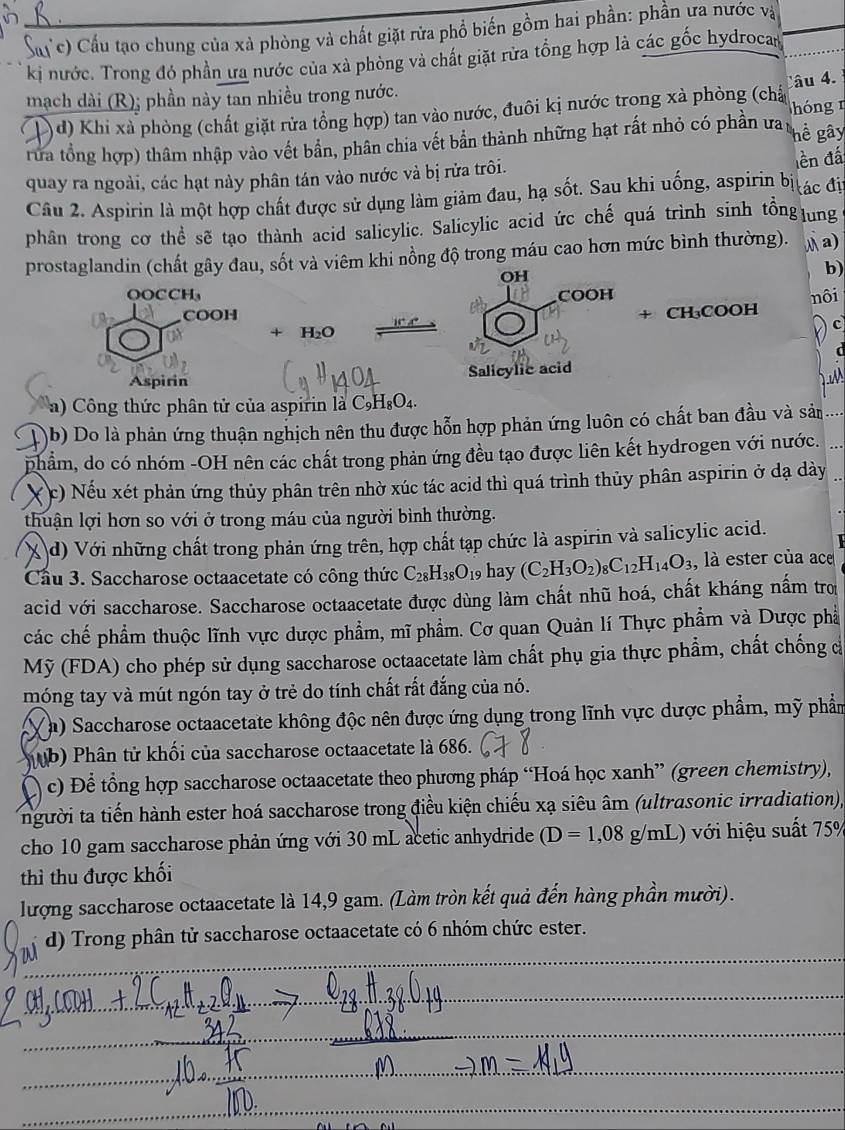 c) Cấu tạo chung của xà phòng và chất giặt rửa phổ biến gồm hai phần: phần ưa nước và
kị nước. Trong đó phần ưa nước của xà phòng và chất giặt rửa tổng hợp là các gốc hydrocar
mạch dài (R); phần này tan nhiều trong nước.
Câu 4.
d) Khi xà phòng (chất giặt rửa tổng hợp) tan vào nước, đuôi kị nước trong xà phòng (chấ
hóng
rửa tổng hợp) thâm nhập vào vết bẩn, phân chia vết bẩn thành những hạt rất nhỏ có phần ưa
hể gây
quay ra ngoài, các hạt này phân tán vào nước và bị rửa trôi.
ền đấ
Câu 2. Aspirin là một hợp chất được sử dụng làm giảm đau, hạ sốt. Sau khi uống, aspirin bị
tác đị
phân trong cơ thể sẽ tạo thành acid salicylic. Salicylic acid ức chế quá trình sinh tổng
lung
prostaglandin (chất gây đau, sốt và viêm khi nồng độ trong máu cao hơn mức bình thường).
a)
b)
OOCCH₃
COOH
+ H₂O
OH
COOH
+ CH₃COOH
môi
c)
d
Aspirin
Salicylic acid
a) Công thức phân tử của aspirin là C₉H₈O₄.
b) Do là phản ứng thuận nghịch nên thu được hỗn hợp phản ứng luôn có chất ban đầu và sản
phẩm, do có nhóm -OH nên các chất trong phản ứng đều tạo được liên kết hydrogen với nước.
c) Nếu xét phản ứng thủy phân trên nhờ xúc tác acid thì quá trình thủy phân aspirin ở dạ dày
thuận lợi hơn so với ở trong máu của người bình thường.
d) Với những chất trong phản ứng trên, hợp chất tạp chức là aspirin và salicylic acid.
Câu 3. Saccharose octaacetate có công thức C₂₈H₃₈O₁₉ hay (C₂H₃O₂)₈C₁₂H₁₄O₃, là ester của ace
acid với saccharose. Saccharose octaacetate được dùng làm chất nhũ hoá, chất kháng nấm tro
các chế phẩm thuộc lĩnh vực dược phẩm, mĩ phẩm. Cơ quan Quản lí Thực phẩm và Dược phẩ
Mỹ (FDA) cho phép sử dụng saccharose octaacetate làm chất phụ gia thực phẩm, chất chống c
móng tay và mút ngón tay ở trẻ do tính chất rất đắng của nó.
a) Saccharose octaacetate không độc nên được ứng dụng trong lĩnh vực dược phẩm, mỹ phẩm
b) Phân tử khối của saccharose octaacetate là 686. 678
c) Để tổng hợp saccharose octaacetate theo phương pháp “Hoá học xanh” (green chemistry),
người ta tiến hành ester hoá saccharose trong điều kiện chiếu xạ siêu âm (ultrasonic irradiation),
cho 10 gam saccharose phản ứng với 30 mL acetic anhydride (D = 1,08 g/mL) với hiệu suất 75%
thì thu được khối
lượng saccharose octaacetate là 14,9 gam. (Làm tròn kết quả đến hàng phần mười).
d) Trong phân tử saccharose octaacetate có 6 nhóm chức ester.
2CH₃COOH + 2C₁₂H₂₂O₁₁ → C₂₈H₃₈O₁₉
342 678
75 m → m = 14,9
100